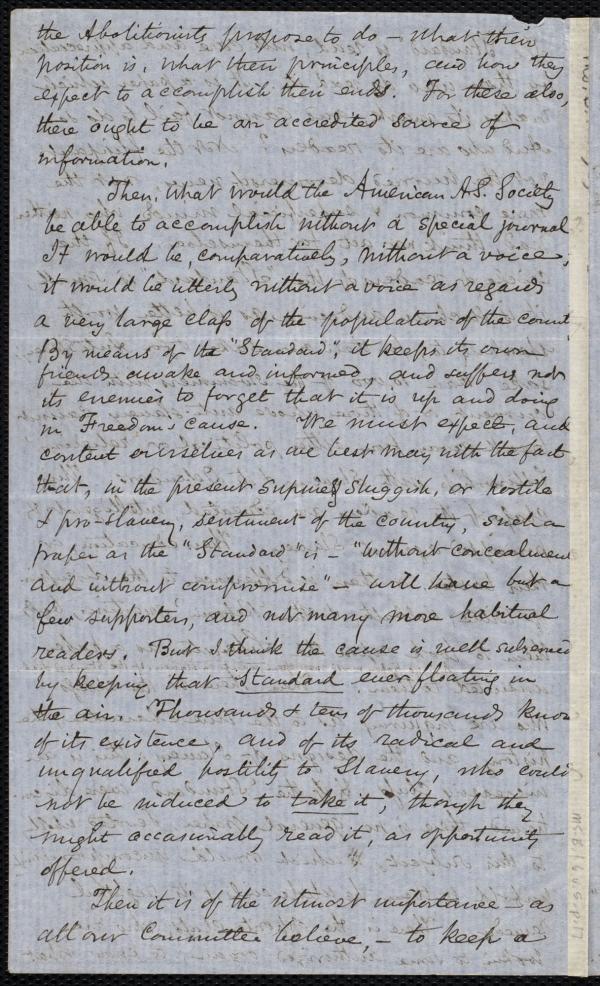 the Abolitionists propose to do – what their
position is, what their principles, and how they
expect to accomplish their ends. For these also,
there ought to be an accredited source of
information.
Then, what would the American A.S. Society
be able to accomplish without a special journal
It would be, comparatively, without a voice,
it would be utterly without a voice as regards
a very large class of the population of the count
By means of the "Standard", it keeps its own
friends awake and informed, and suffers not
its enemies to forget that it is up and doing
in Freedom's cause. We must expect, and
content ourselves as we best may with the fact
that, in the present supine, sluggish, or hostile
& pro-slavery, sentiment of the country, such a
paper as the "Standard" is – "without concealment
and without compromise" – will have but a
few supporters, and not many more habitual
readers. But I think the cause is well subserved
by keeping that Standard ever floating in
the air. Thousands & tens of thousands know
of its existence, and of its radical and
unqualified hostility to Slavery, who could
not be induced to take it, though they
might occasionally read it, as opportunity
offered.
Then it is of the utmost importance – as
all our Committee believe, – to keep a